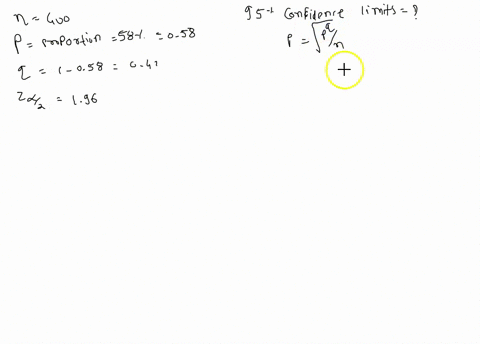 n = 400
P = proportion = 58% = 0.58
q = 1 - 0.58 = 0.42
Zα/2 = 1.96
95% Confidence limits = ?
P = √pq/n